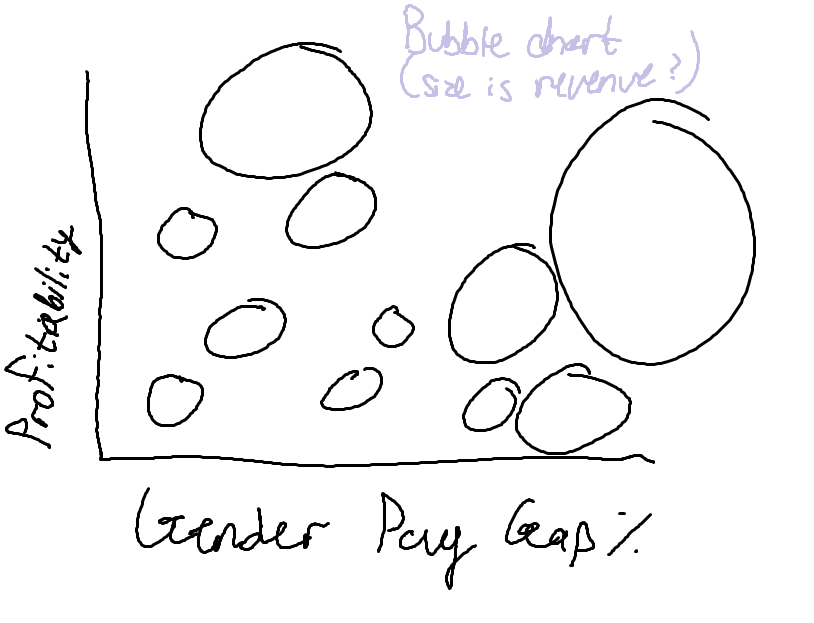 Bubble chart
(size is revenue?)
Profitability
Gender Pay Gap %